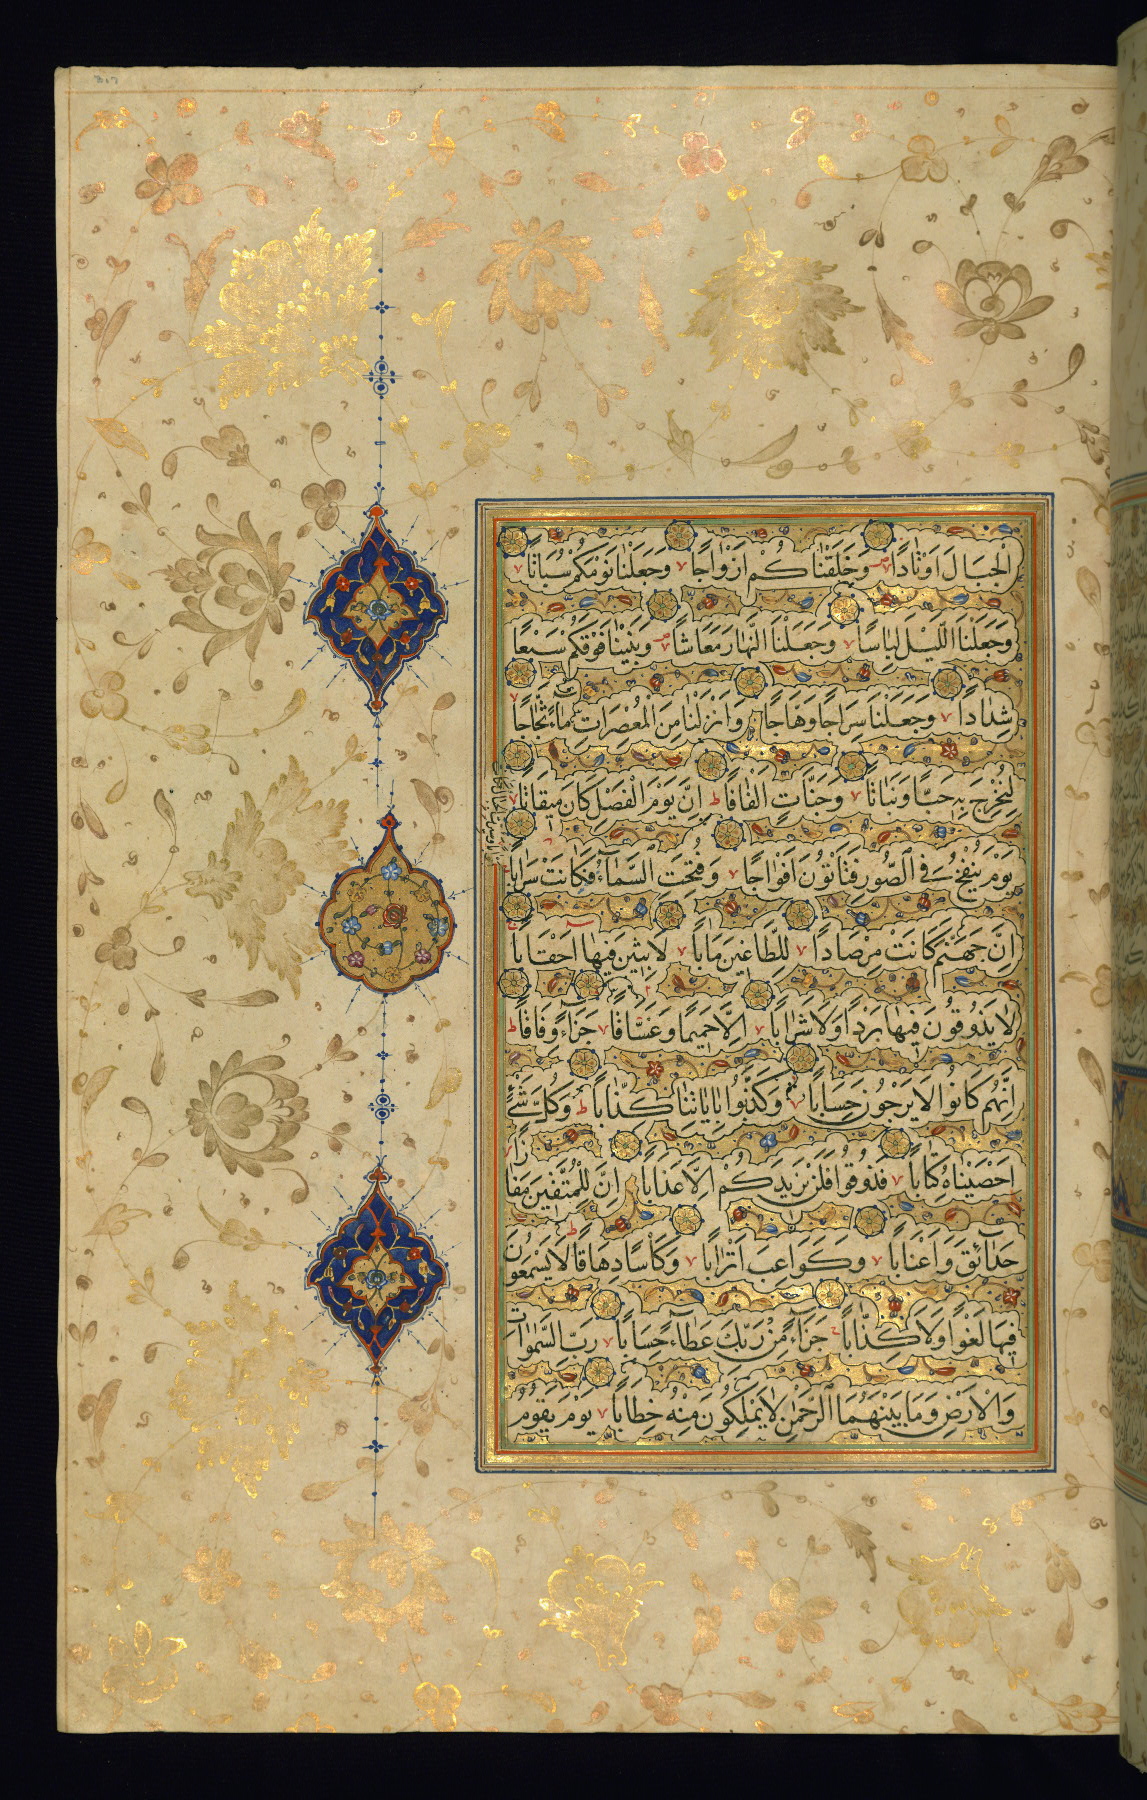 الْجِبَالَ اَوْتَادًا وَخَلَقْنَاكُمْ اَزْوَاجًا وَجَعَلْنَا نَوْمَكُمْ سُبَاتًا
وَجَعَلْنَا اللَّيْلَ لِبَاسًا وَجَعَلْنَا النَّهَارَ مَعَاشًا وَبَنَيْنَا فَوْقَكُمْ سَبْعًا
شِدَادًا وَجَعَلْنَا سِرَاجًا وَهَّاجًا وَاَنْزَلْنَا مِنَ الْمُعْصِرَاتِ مَاءً ثَجَّاجًا
لِنُخْرِجَ بِهِ حَبًّا وَنَبَاتًا وَجَنَّاتٍ اَلْفَافًا اِنَّ يَوْمَ الْفَصْلِ كَانَ مِيقَاتًا
يَوْمَ يُنْفَخُ فِي الصُّورِ فَتَأْتُونَ اَفْوَاجًا وَفُتِحَتِ السَّمَاءُ فَكَانَتْ
اِنَّ جَهَنَّمَ كَانَتْ مِرْصَادًا لِلطَّاغِينَ مَاٰبًا لَابِثِينَ فِيهَا اَحْقَابًا
لَا يَذُوقُونَ فِيهَا بَرْدًا وَلَا شَرَابًا اِلَّا حَمِيمًا وَغَسَّاقًا جَزَاءً وِفَاقًا
اِنَّهُمْ كَانُوا لَا يَرْجُونَ حِسَابًا وَكَذَّبُوا بِاٰيَاتِنَا كِذَّابًا وَكُلَّ شَيْءٍ
اَحْصَيْنَاهُ كِتَابًا فَذُوقُوا فَلَنْ نَزِيدَكُمْ اِلَّا عَذَابًا اِنَّ لِلْمُتَّقِينَ مَفَازًا
حَدَائِقَ وَاَعْنَابًا وَكَوَاعِبَ اَتْرَابًا وَكَأْسًا دِهَاقًا لَا يَسْمَعُونَ
فِيهَا لَغْوًا وَلَا كِذَّابًا جَزَاءً مِنْ رَبِّكَ عَطَاءً حِسَابًا رَبِّ السَّمٰوَاتِ
وَالْاَرْضِ وَمَا بَيْنَهُمَا الرَّحْمٰنِ لَا يَمْلِكُونَ مِنْهُ خِطَابًا يَوْمَ يَقُومُ